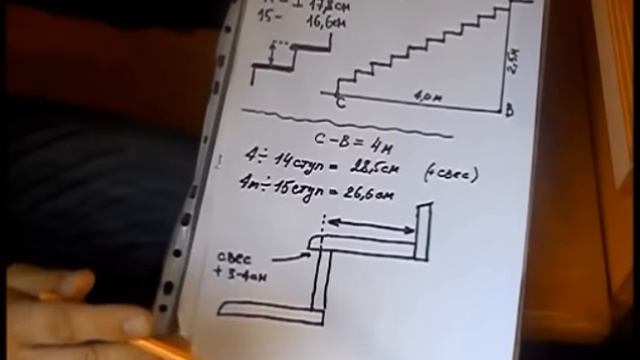 17,8см
15- 16,6см
2,5м
4,0м
C
B
C-B = 4м
4÷14ступ = 28,5см (+свес)
4м÷15ступ = 26,6см
свес
+ 3-4см